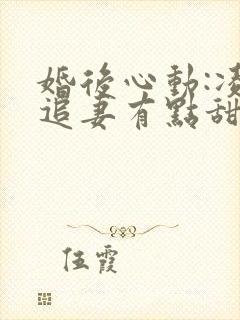 婚後心動:凌
追妻有點甜
伍霞